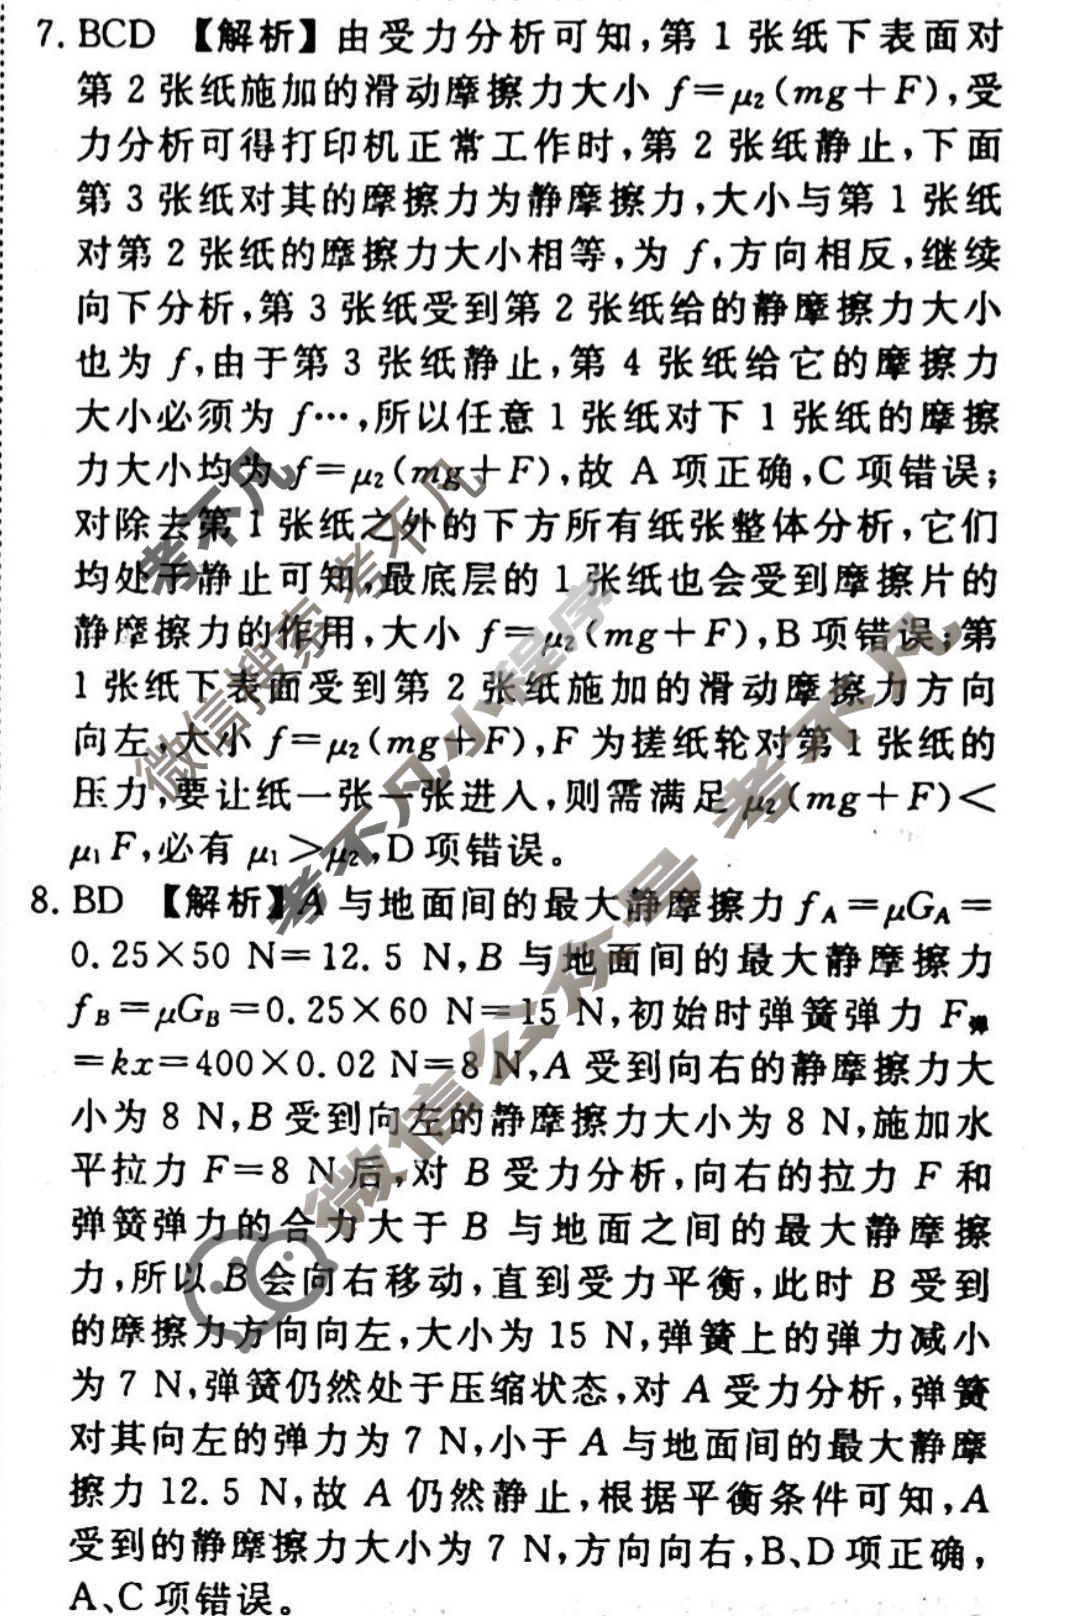 7. BCD 【解析】由受力分析可知,第 1 张纸下表面对
第 2 张纸施加的滑动摩擦力大小 f=μ₂(mg+F),受
力分析可得打印机正常工作时,第 2 张纸静止,下面
第 3 张纸对其的摩擦力为静摩擦力,大小与第 1 张纸
对第 2 张纸的摩擦力大小相等,为 f,方向相反,继续
向下分析,第 3 张纸受到第 2 张纸给的静摩擦力大小
也为 f,由于第 3 张纸静止,第 4 张纸给它的摩擦力
大小必须为 f…,所以任意 1 张纸对下 1 张纸的摩擦
力大小均为 f=μ₂(mg+F),故 A 项正确,C 项错误;
对除去第 1 张纸之外的下方所有纸张整体分析,它们
均处于静止可知,最底层的 1 张纸也会受到摩擦片的
静摩擦力的作用,大小 f=μ₂(mg+F),B 项错误;第
1 张纸下表面受到第 2 张纸施加的滑动摩擦力方向
向左,大小 f=μ₂(mg+F),F 为搓纸轮对第 1 张纸的
压力,要让纸一张一张进入,则需满足 μ₂(mg+F)<
μ₁F,必有 μ₁>μ₂,D 项错误。
8. BD 【解析】A 与地面间的最大静摩擦力 f_A=μG_A=
0.25×50 N=12.5 N,B 与地面间的最大静摩擦力
f_B=μG_B=0.25×60 N=15 N,初始时弹簧弹力 F弹
=kx=400×0.02 N=8 N,A 受到向右的静摩擦力大
小为 8 N,B 受到向左的静摩擦力大小为 8 N,施加水
平拉力 F=8 N 后,对 B 受力分析,向右的拉力 F 和
弹簧弹力的合力大于 B 与地面之间的最大静摩擦
力,所以 B 会向右移动,直到受力平衡,此时 B 受到
的摩擦力方向向左,大小为 15 N,弹簧上的弹力减小
为 7 N,弹簧仍然处于压缩状态,对 A 受力分析,弹簧
对其向左的弹力为 7 N,小于 A 与地面间的最大静摩
擦力 12.5 N,故 A 仍然静止,根据平衡条件可知,A
受到的静摩擦力大小为 7 N,方向向右,B、D 项正确,
A、C 项错误。
考不凡
微信搜索 考不凡
考不凡小程序
微信公众号 考不凡